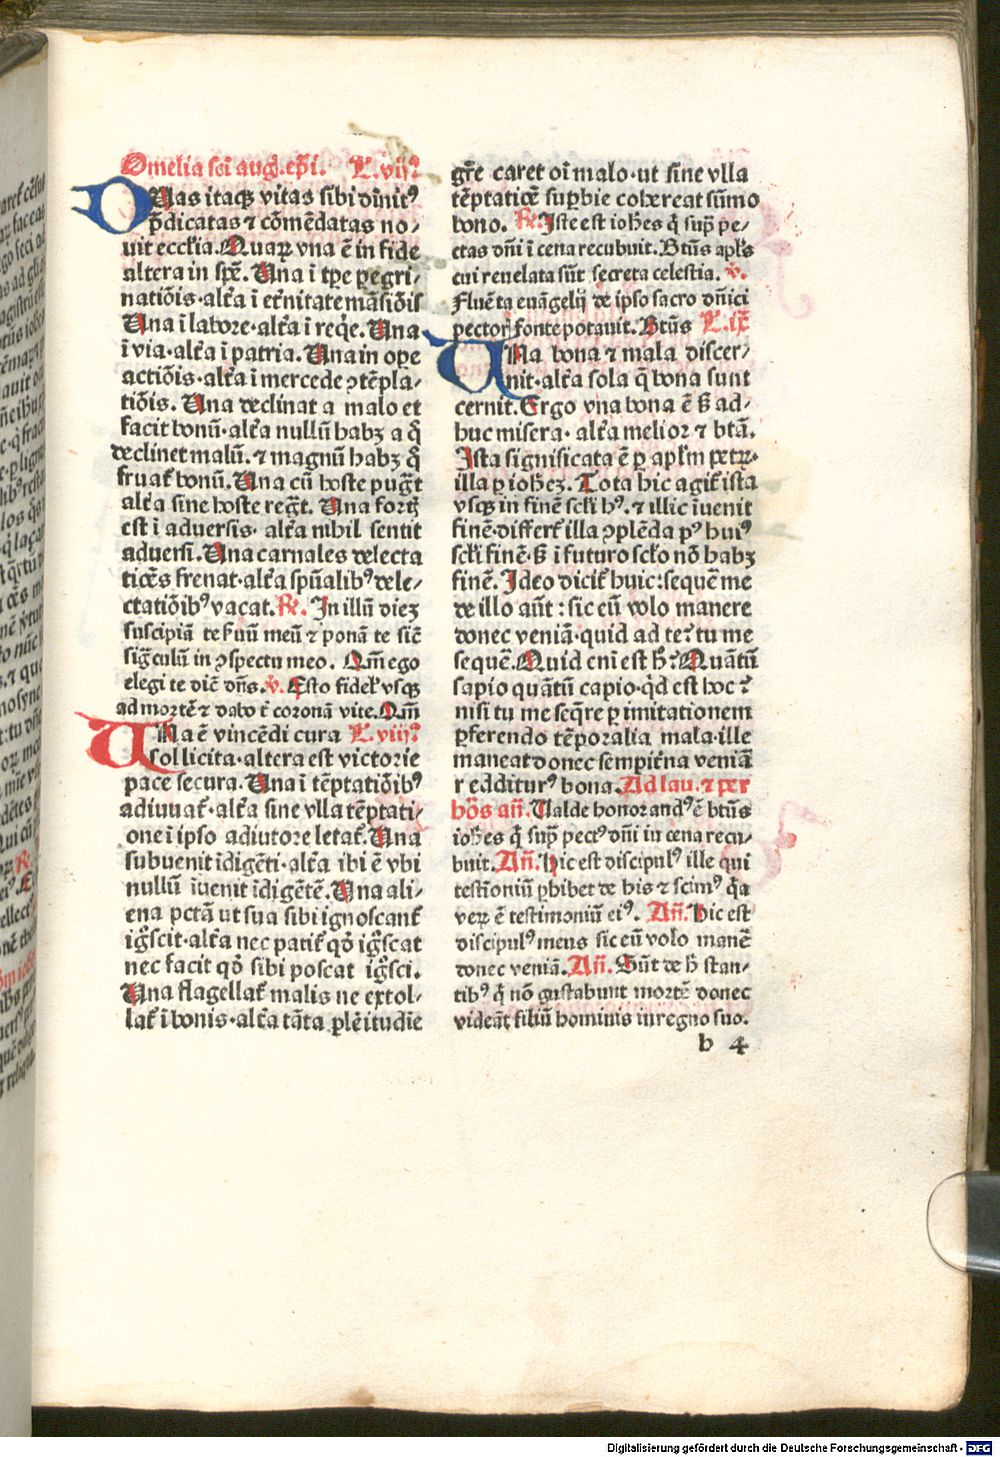 Omelia sci augꝰ. epi. L. vijꝰ
Duas itaqꝫ vitas sibi diuinitꝰ
p̄dicatas ⁊ cōmēdatas no/
uit ecclia. Quaꝝ vna ē in fide
altera in spē. Una ī tpe pegri/
natiōis·altā ī etnitate māsiōis
Una ī labore·altā ī reqe. Una
ī via·altā ī patria. Una in ope
actiōis·altā ī mercede ꝯtēpla/
tiōis. Una declinat a malo et
facit bonū·altā nullū habꝫ a q̄
declinet malū. ⁊ magnū habꝫ q̄
fruat bonū. Una cū hoste pugt
altā sine hoste regt. Una fortꝭ
est ī aduersis· altā nihil sentit
aduersi. Una carnales delecta
tiōes frenat·altā spūalibꝰ dele/
ctatiōibꝰ vacat. Rꝭ. In illū dieꝫ
suscipiā te suū meū ⁊ ponā te sic
signaculū in ꝯspectu meo. Qm̄ ego
elegi te dic dn̄s. v̄. Esto fidel vsqꝫ
ad mortē ⁊ dabo t coronā vite. Qm̄
Una ē vincēdi cura L. viijꝰ
sollicita·altera est victorie
pace secura. Una ī tēptatiōibꝰ
adiuuat·altā sine vlla tēptati/
one ī ipso adiutore letat. Una
subuenit īdigēti·altā ibi ē vbi
nullū īuenit īdigētē. Una ali/
ena pctā ut sua sibi ignoscant
igscit·altā nec patit qd igscat
nec facit qd sibi poscat igsci.
Una flagellat malis ne extol/
lat ī bonis·altā tāta pleītudie
gre caret oī malo·ut sine vlla
tēptatiōe supbie cohereat sūmo
bono. Rꝭ. Iste est iohes q̄ sup pe/
ctas dn̄i ī cena recubuit. Btūs apls
cui reuelata sūt secreta celestia. v̄.
Fluēta euāgelij de ipso sacro dn̄ici
pectorꝭ fonte potauit. Btūs L. ix̄
Una bona ⁊ mala discer/
nit·altā sola q̄ bona sunt
cernit. Ergo vna bona ē ß ad/
huc misera· altā melior ⁊ btā.
Ista significata ē p aplm petꝝ·
illa p ioheꝫ. Tota hic agit ista
vsqꝫ in finē scli hꝰ. ⁊ illic īuenit
finē·differt illa ꝯplēda pꝰ huiꝰ
scli finē·ß ī futuro sclo nō habꝫ
finē. Ideo dicit huic: sequē me
de illo aūt : sic eū volo manere
donec veniā·quid ad te? tu me
sequē. Quid eni est h̄? Quātū
sapio quātū capio·qd est hoc ?
nisi tu me seqre p imitationem
pferendo tēporalia mala·ille
maneat donec sempitna veniā
redditurꝰ bona. Ad lau. ⁊ per
hōs añ. Valde honorandꝰ ē btūs
iohes q̄ sup pectꝰ dn̄i in cena recu/
buit. Añ. Hic est discipulꝰ ille qui
testioniū phibet de his ⁊ scimꝰ qa
veꝝ ē testimoniū eiꝰ. Añ. Hic est
discipulꝰ meus sic eū volo manē
donec veniā. Añ. Sūt de h̄ stan/
tibꝰ q̄ nō gustabunt mortē donec
videāt filiū hominis in regno suo.
b 4
Digitalisierung gefördert durch die Deutsche Forschungsgemeinschaft - DFG